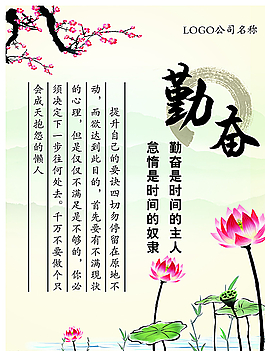 LOGO公司名称
勤奋
勤奋是时间的主人
怠惰是时间的奴隶
提升自己的要诀四切勿停留在原地不
动，而欲达到此目的，首先要有不满现状
的心理，但是仅仅不满足是不够的，你必
须决定下一步往何处去。千万不要做个只
会成天抱怨的懒人